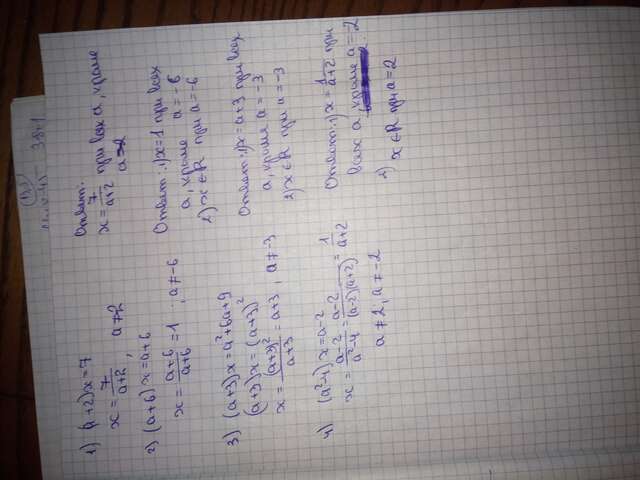 1) (a+2)x=7
x = 7/(a+2), a≠-2
Ответ:
x = 7/(a+2) при всех a, кроме
a=-2
2) (a+6)x=a+6
x = (a+6)/(a+6) = 1, a≠-6
Ответ: 1) x=1 при всех
a, кроме a=-6
2) x∈R при a=-6
3) (a+3)x=a²+6a+9
(a+3)x=(a+3)²
x = (a+3)²/(a+3) = a+3, a≠-3
Ответ: 1) x=a+3 при всех
a, кроме a=-3
2) x∈R при a=-3
4) (a²-4)x=a-2
x = (a-2)/(a²-4) = (a-2)/((a-2)(a+2)) = 1/(a+2)
a≠2; a≠-2
Ответ: 1) x = 1/(a+2) при
всех a, кроме a=2
2) x∈R при a=2